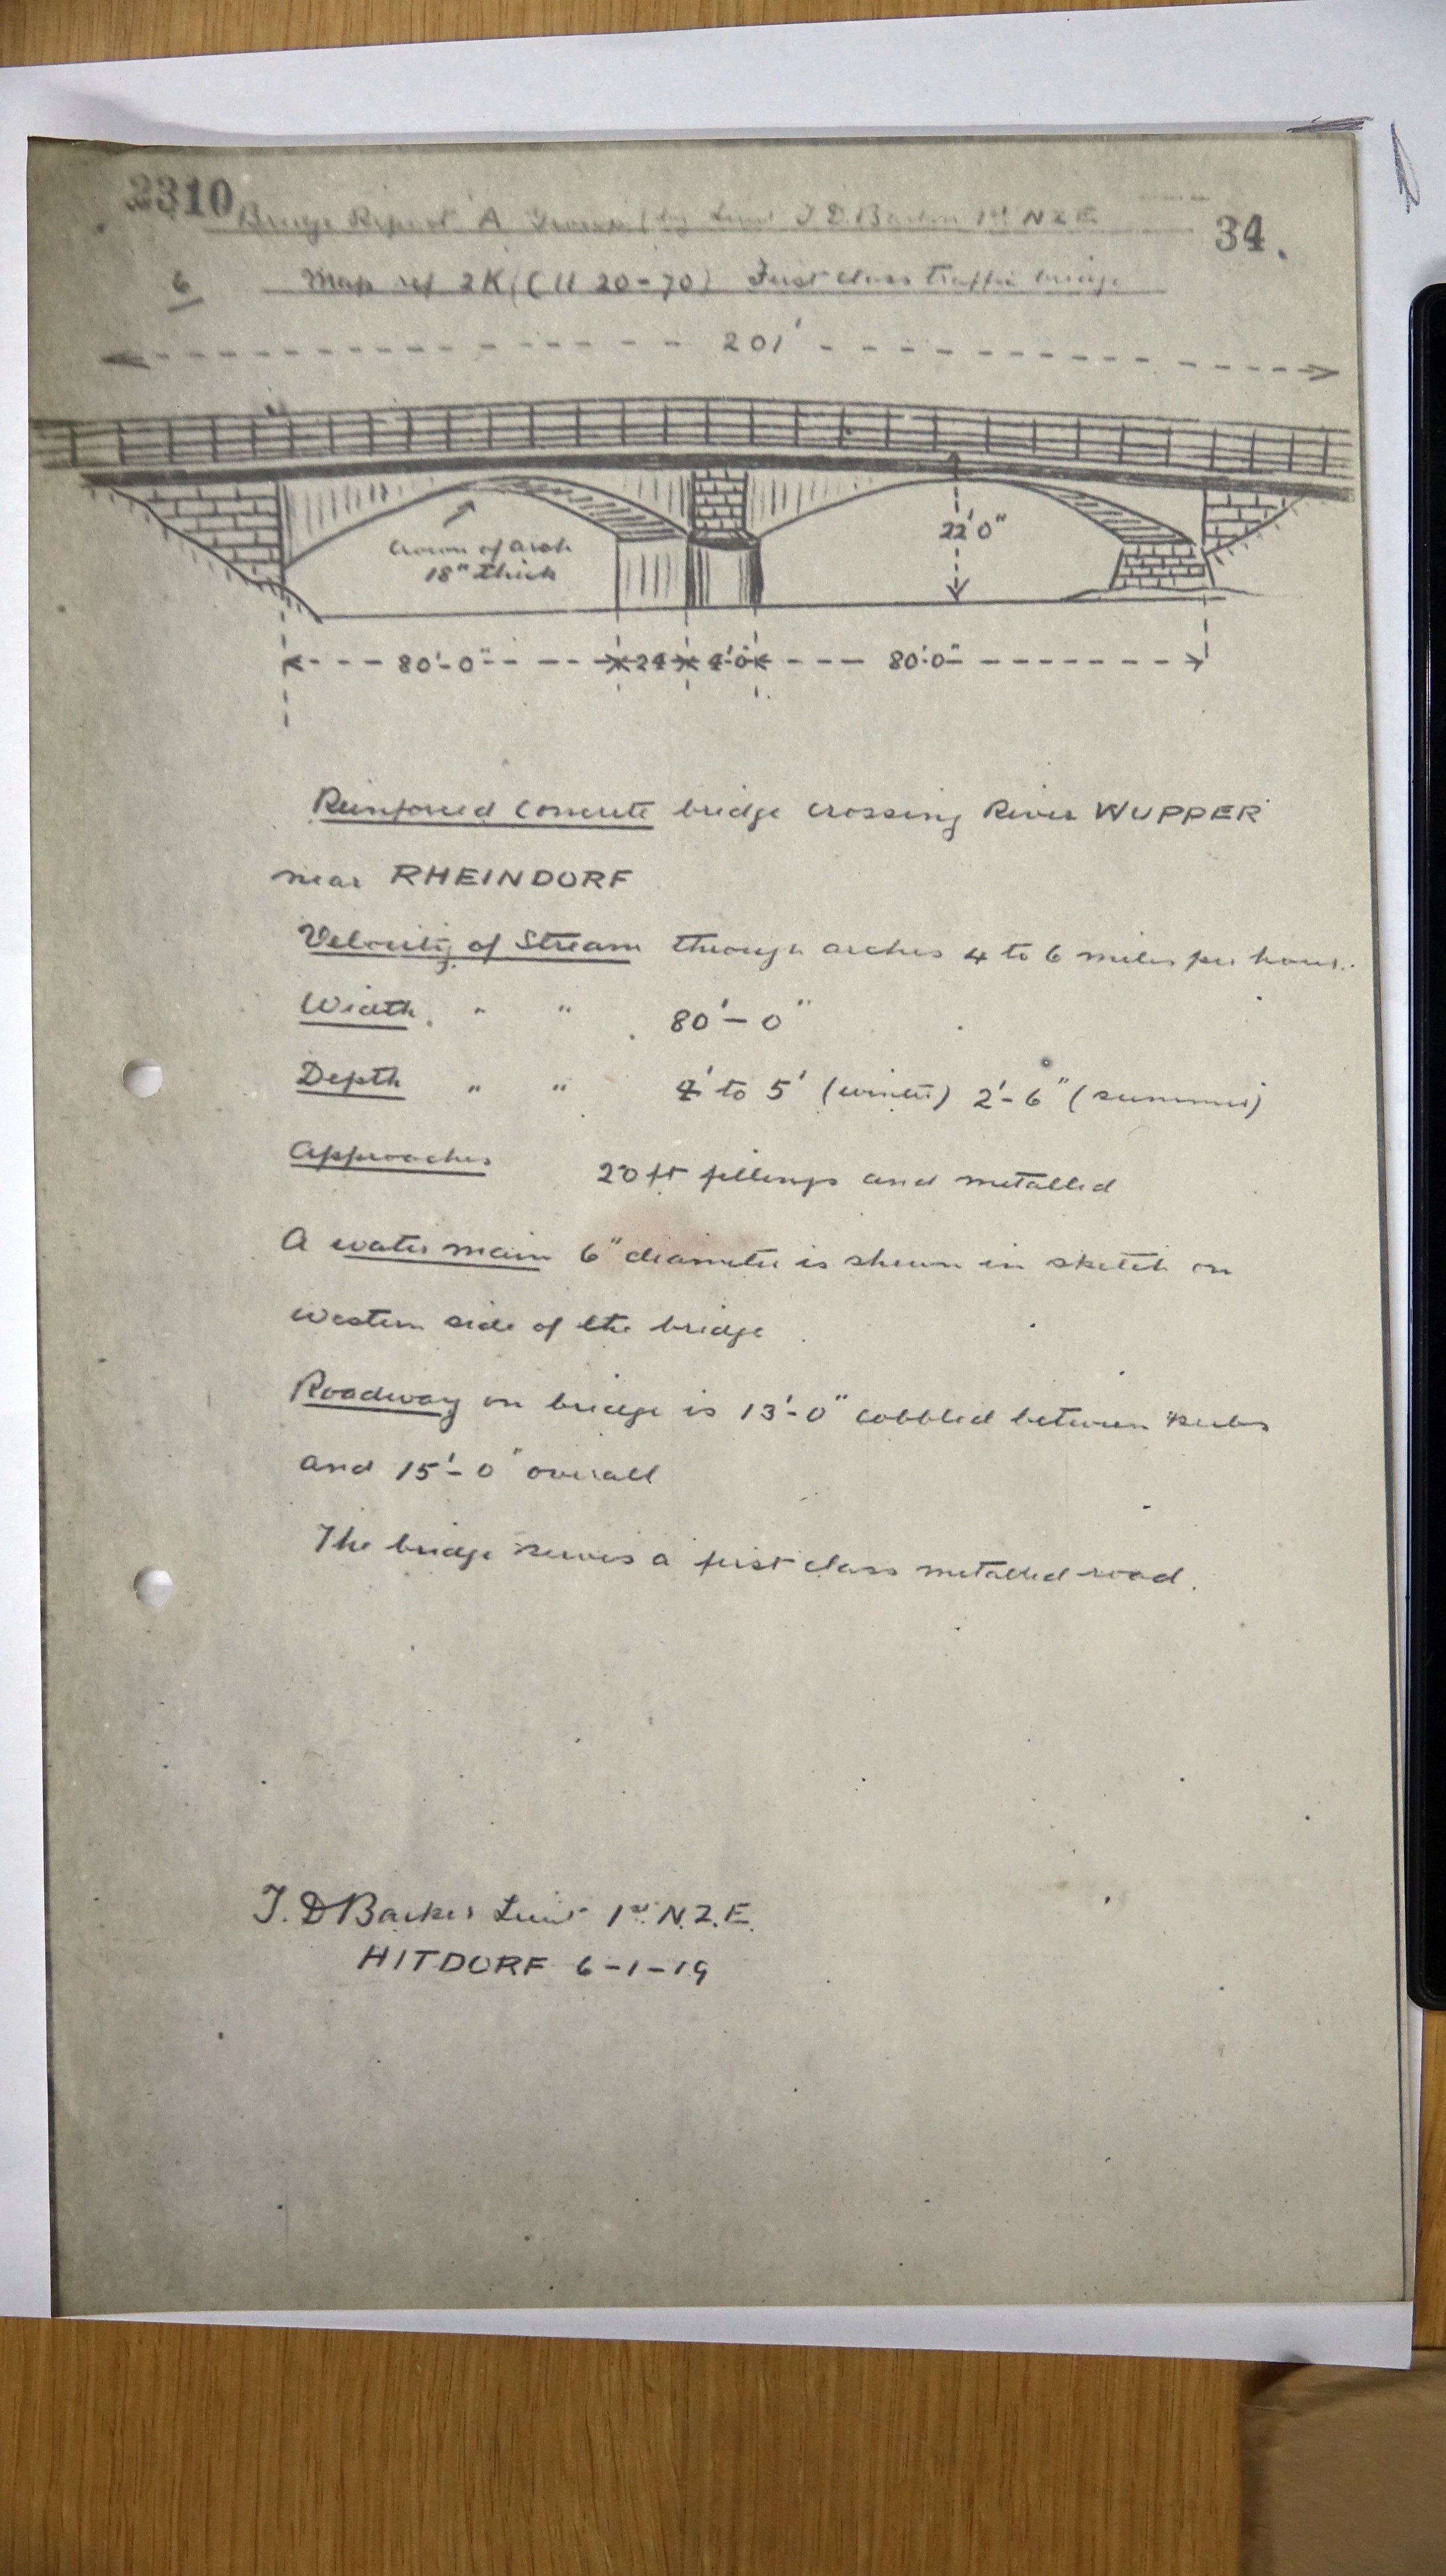 2310
Bridge Report "A" Group (by Lieut J D. Barker 1st N Z E
34.
6 Map ref 2K, (11 20-70) First class traffic bridge
201'
Crown of arch
18" thick
22'0"
80'-0" 24 4'-0" 80'-0"
Reinforced Concrete bridge crossing River WUPPER
near RHEINDORF
Velocity of Stream through arches 4 to 6 miles per hour.
Width " " 80'-0"
Depth " " 4' to 5' (winter) 2'-6" (summer)
Approaches 20 ft fillings and metalled
A water main 6" diameter is shewn in sketch on
western side of the bridge
Roadway on bridge is 13'-0" cobbled between kerbs
and 15'-0" overall
The bridge serves a first class metalled road.
J. D Barker Lieut 1st N.Z.E.
HITDORF 6-1-19